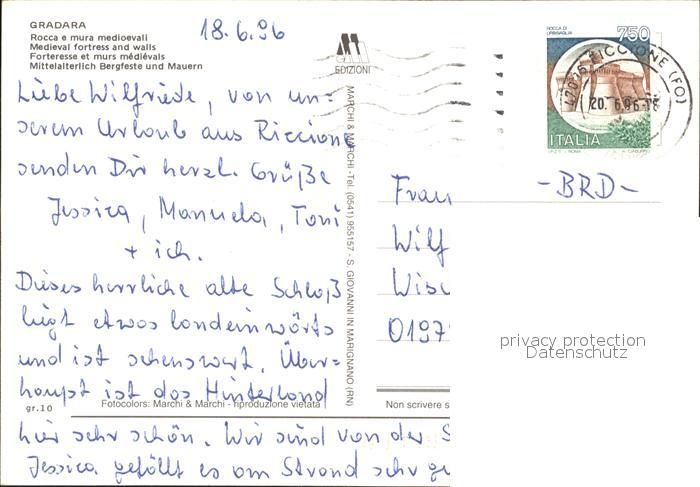 GRADARA
Rocca e mura medioevali
Medieval fortress and walls
Forteresse et murs médiévals
Mittelalterlich Bergfeste und Mauern
18.6.96
EDIZIONI
ROCCA DI URBISAGLIA
750
RICCIONE (FO)
20. 6.96-18
ITALIA
Liebe Wilfriede, von un=
serem Urlaub aus Riccione
senden Dir herzl. Grüße
Jessica, Manuela, Toni
+ ich.
Dieses herrliche alte Schloß
liegt etwas landeinwärts
und ist sehenswert. Über=
haupt ist das Hinterland
hier sehr schön. Wir sind von der S
Jessica gefällt es am Strand sehr gu
gr.10
Fotocolors: Marchi & Marchi - riproduzione vietata
MARCHI & MARCHI - Tel. (0541) 955157 - S. GIOVANNI IN MARIGNANO (RN)
Non scrivere s
-BRD-
Frau
Wilf
Wisc
0197
privacy protection
Datenschutz